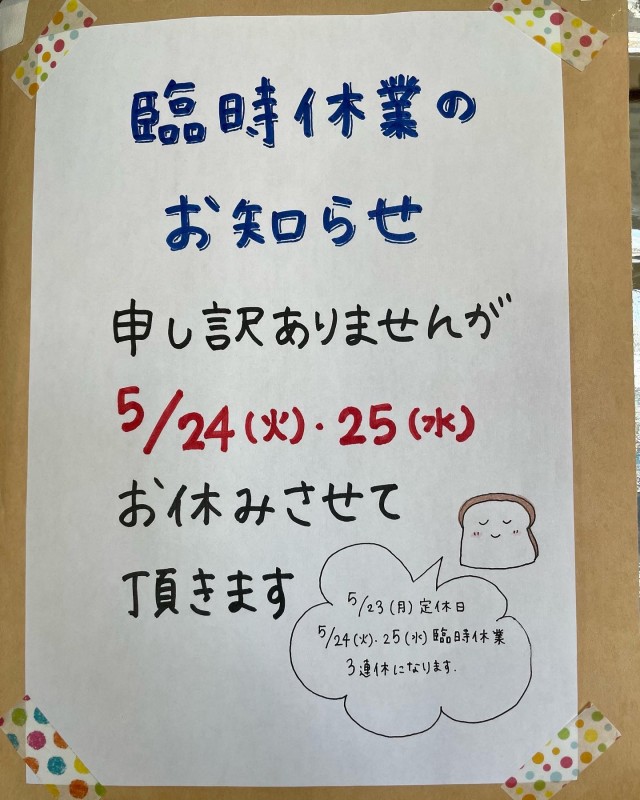 臨時休業の
お知らせ
申し訳ありませんが
5/24(火)・25(水)
お休みさせて
頂きます
5/23(月)定休日
5/24(火)・25(水)臨時休業
3連休になります.